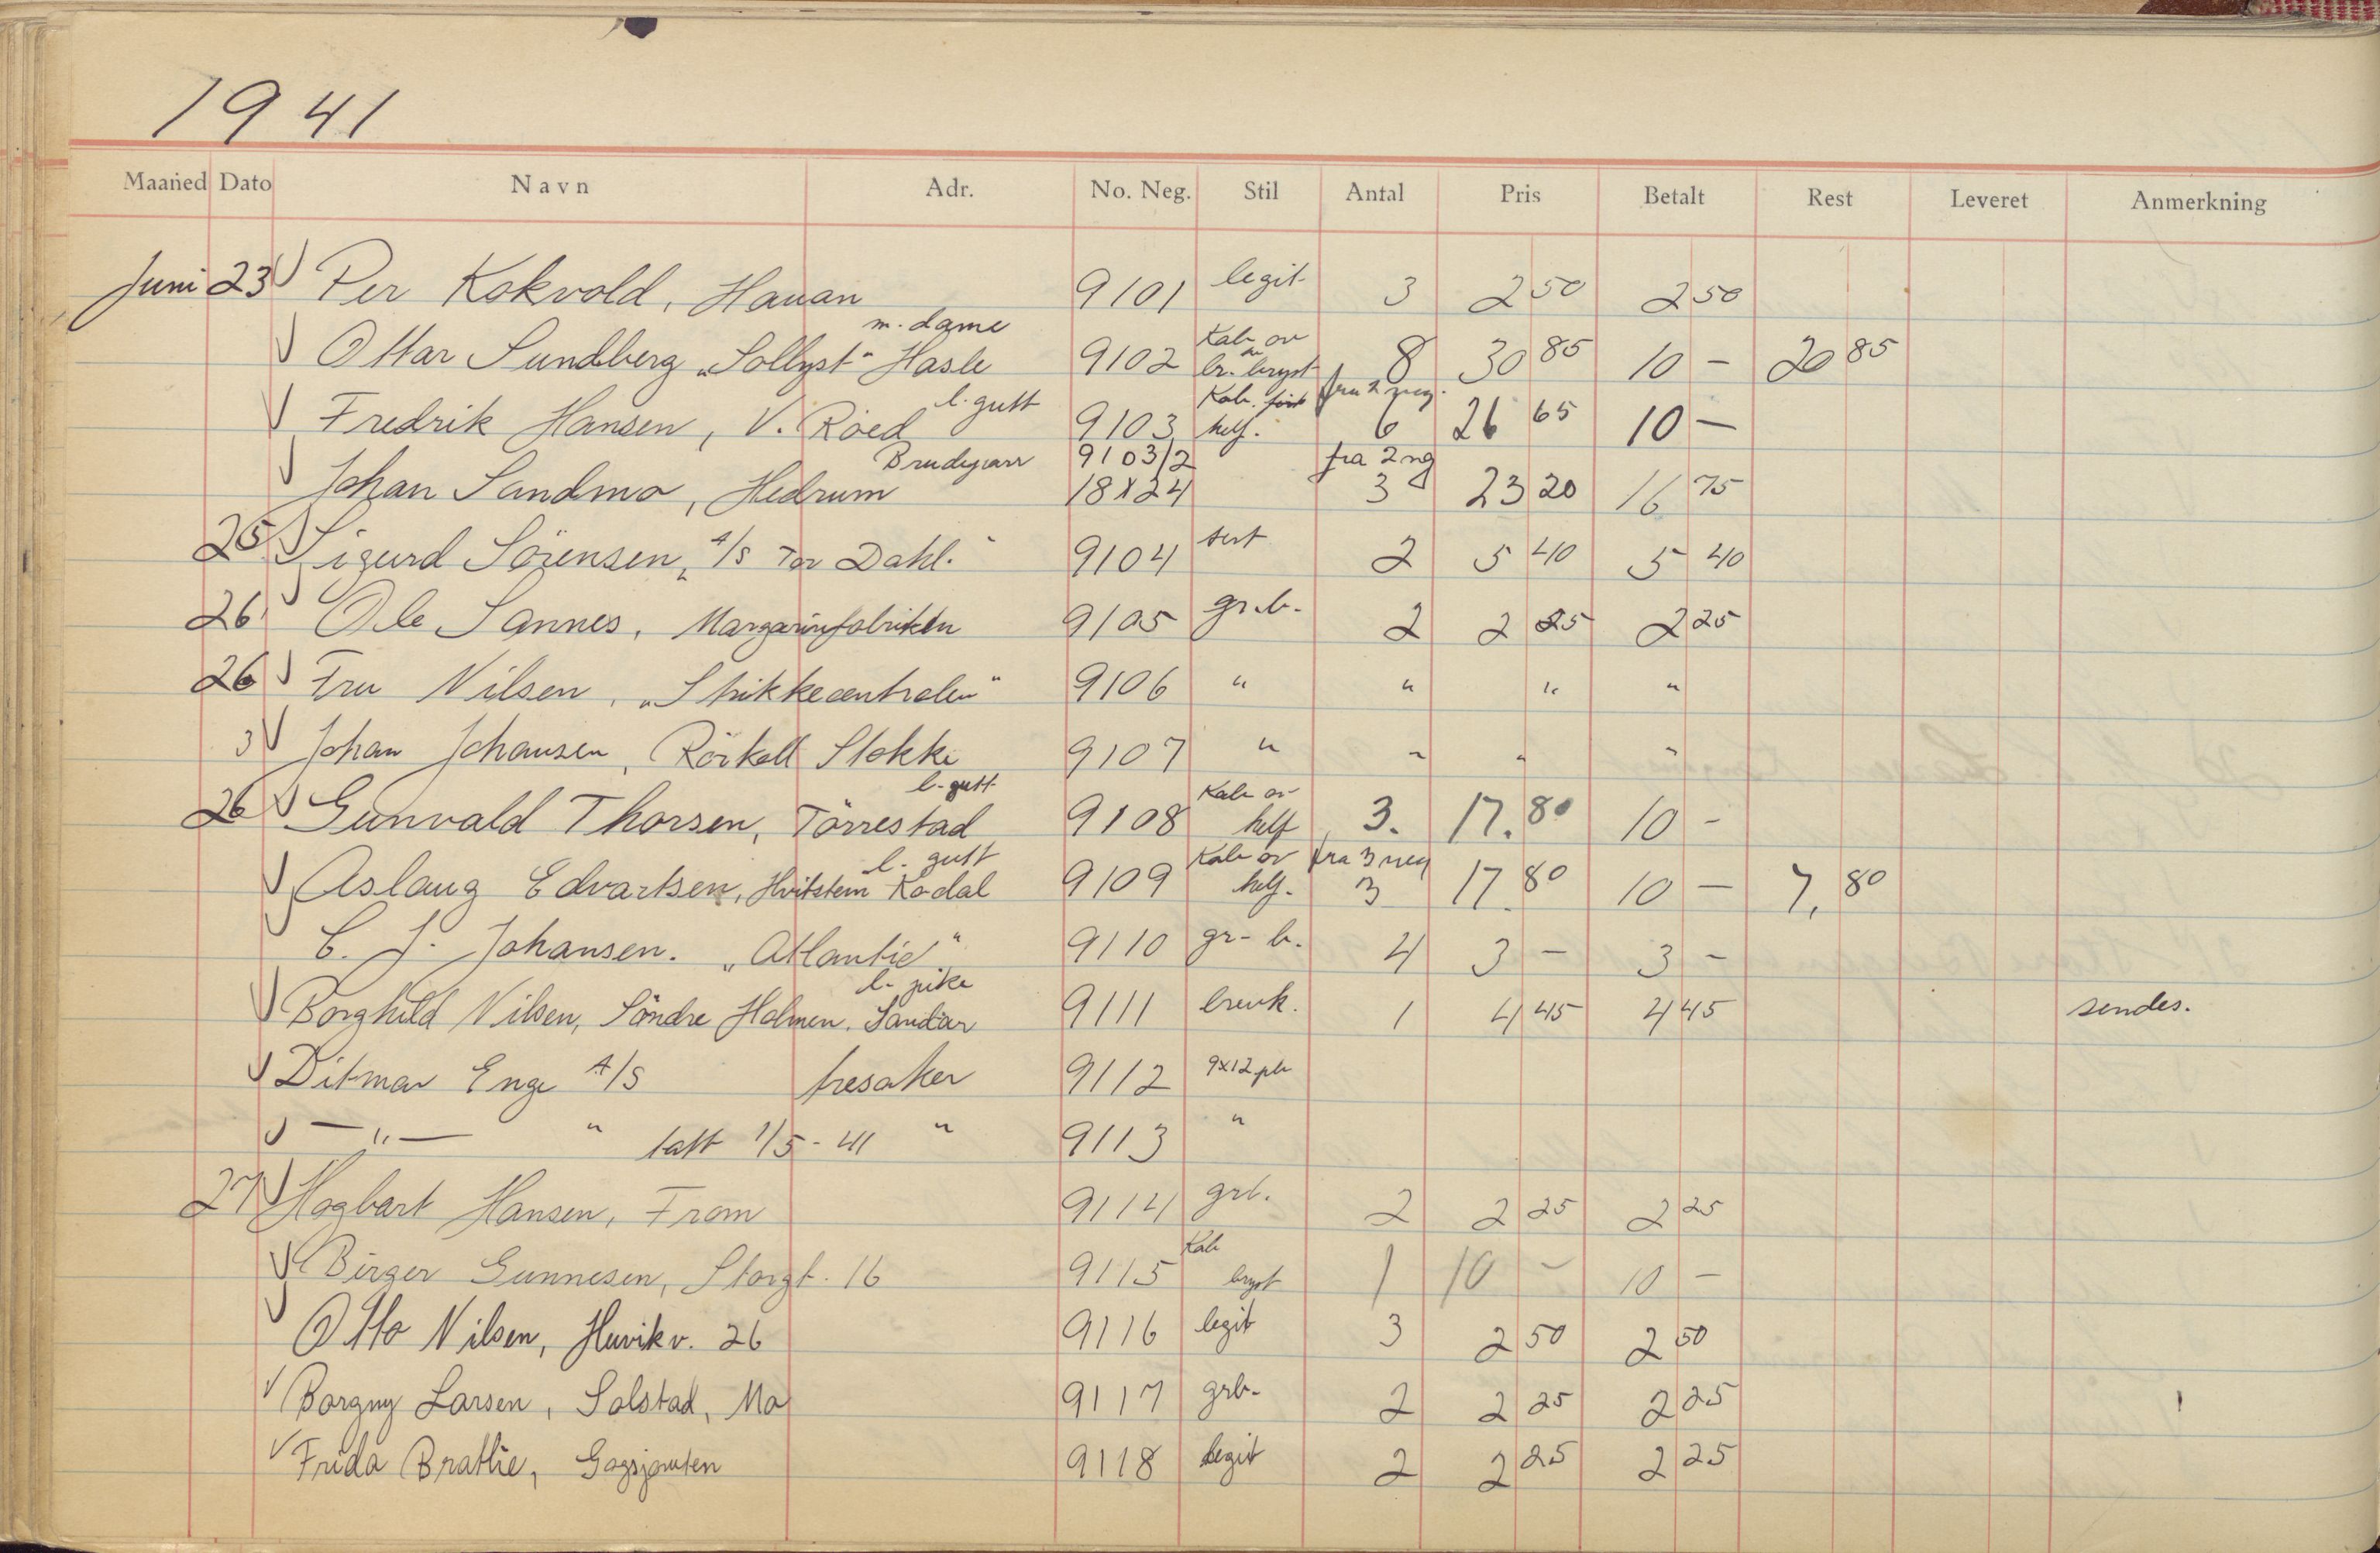 1941
Maaned Dato Navn Adr. No. Neg. Stil Antal Pris Betalt Rest Leveret Anmerkning
Juni 23 Per Kokvold, Hauan 9101 legit 3 2 50 2 50
m. dame Kab. av
Ottar Sundberg „Sollyst" Hasle 9102 br. bryst 8 30 85 10 – 20 85
l. gutt Kab. fra 2 neg.
Fredrik Hansen, V. Röed 9103 helf. 6 26 65 10 –
Brudepar 9103/2 fra 2 ng
Johan Sandmo, Hedrum 18x24 3 23 20 16 75
25 Sigurd Sörensen, „A/S Tor Dahl." 9104 sert 2 5 40 5 40
26 Ole Sannes, Margarinfabrikken 9105 gr.b. 2 2 25 2 25
26 Fru Nilsen, „Strikkecentralen" 9106 " " " "
Johan Johansen, Rörkoll Stokke 9107 " " " "
l. gutt Kab av
26 Gunvald Thorsen, Törrestad 9108 helf 3. 17.80 10 –
l. gutt Kab av fra 3 neg
Aslaug Edvartsen, Hvitstein Kodal 9109 helf. 3 17.80 10 – 7,80
C. J. Johansen. „Atlantic" 9110 gr-b. 4 3 – 3 –
l. pike
Borghild Nilsen, Söndre Holmen. Sandar 9111 brevk. 1 4 45 4 45 sendes.
Ditmar Enge A/S hesaker 9112 9x12 pl
— " — " tatt 1/5-41 " 9113 "
27 Hagbart Hansen, Fram 9114 grb. 2 2 25 2 25
Kab
Birger Gunnesen, Storgt. 16 9115 bryst 1 10 – 10 –
Otto Nilsen, Huvikv. 26 9116 legit 3 2 50 2 50
Borgny Larsen, Solstad, Mo 9117 grb. 2 2 25 2 25
Frida Brattlie, 9118 legit 2 2 25 2 25